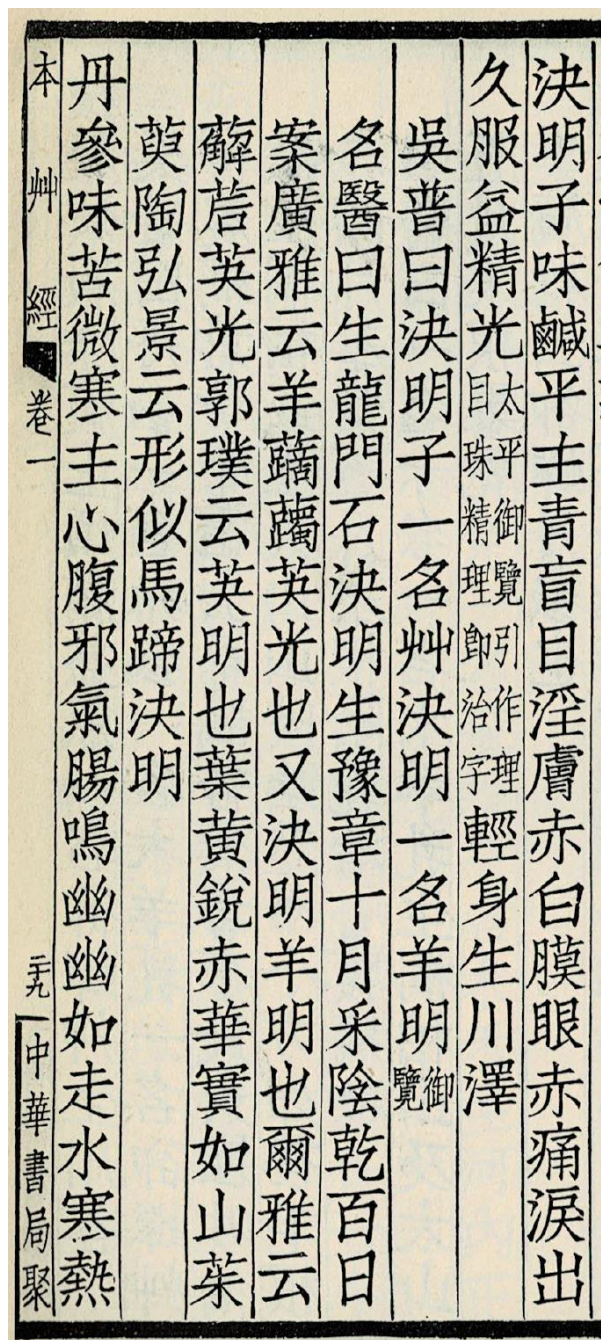 決明子味鹹平主青盲目淫膚赤白膜眼赤痛淚出
久服益精光太平御覽引作理目珠精理卽治字輕身生川澤
吳普曰決明子一名艸決明一名羊明御覽
名醫曰生龍門石決明生豫章十月采陰乾百日
案廣雅云羊䕞䕽英光也又決明羊明也爾雅云
薢茩英光郭璞云英明也葉黃銳赤華實如山茱
萸陶弘景云形似馬蹄決明
丹參味苦微寒主心腹邪氣腸鳴幽幽如走水寒熱
本艸經
卷一
二十九
中華書局聚